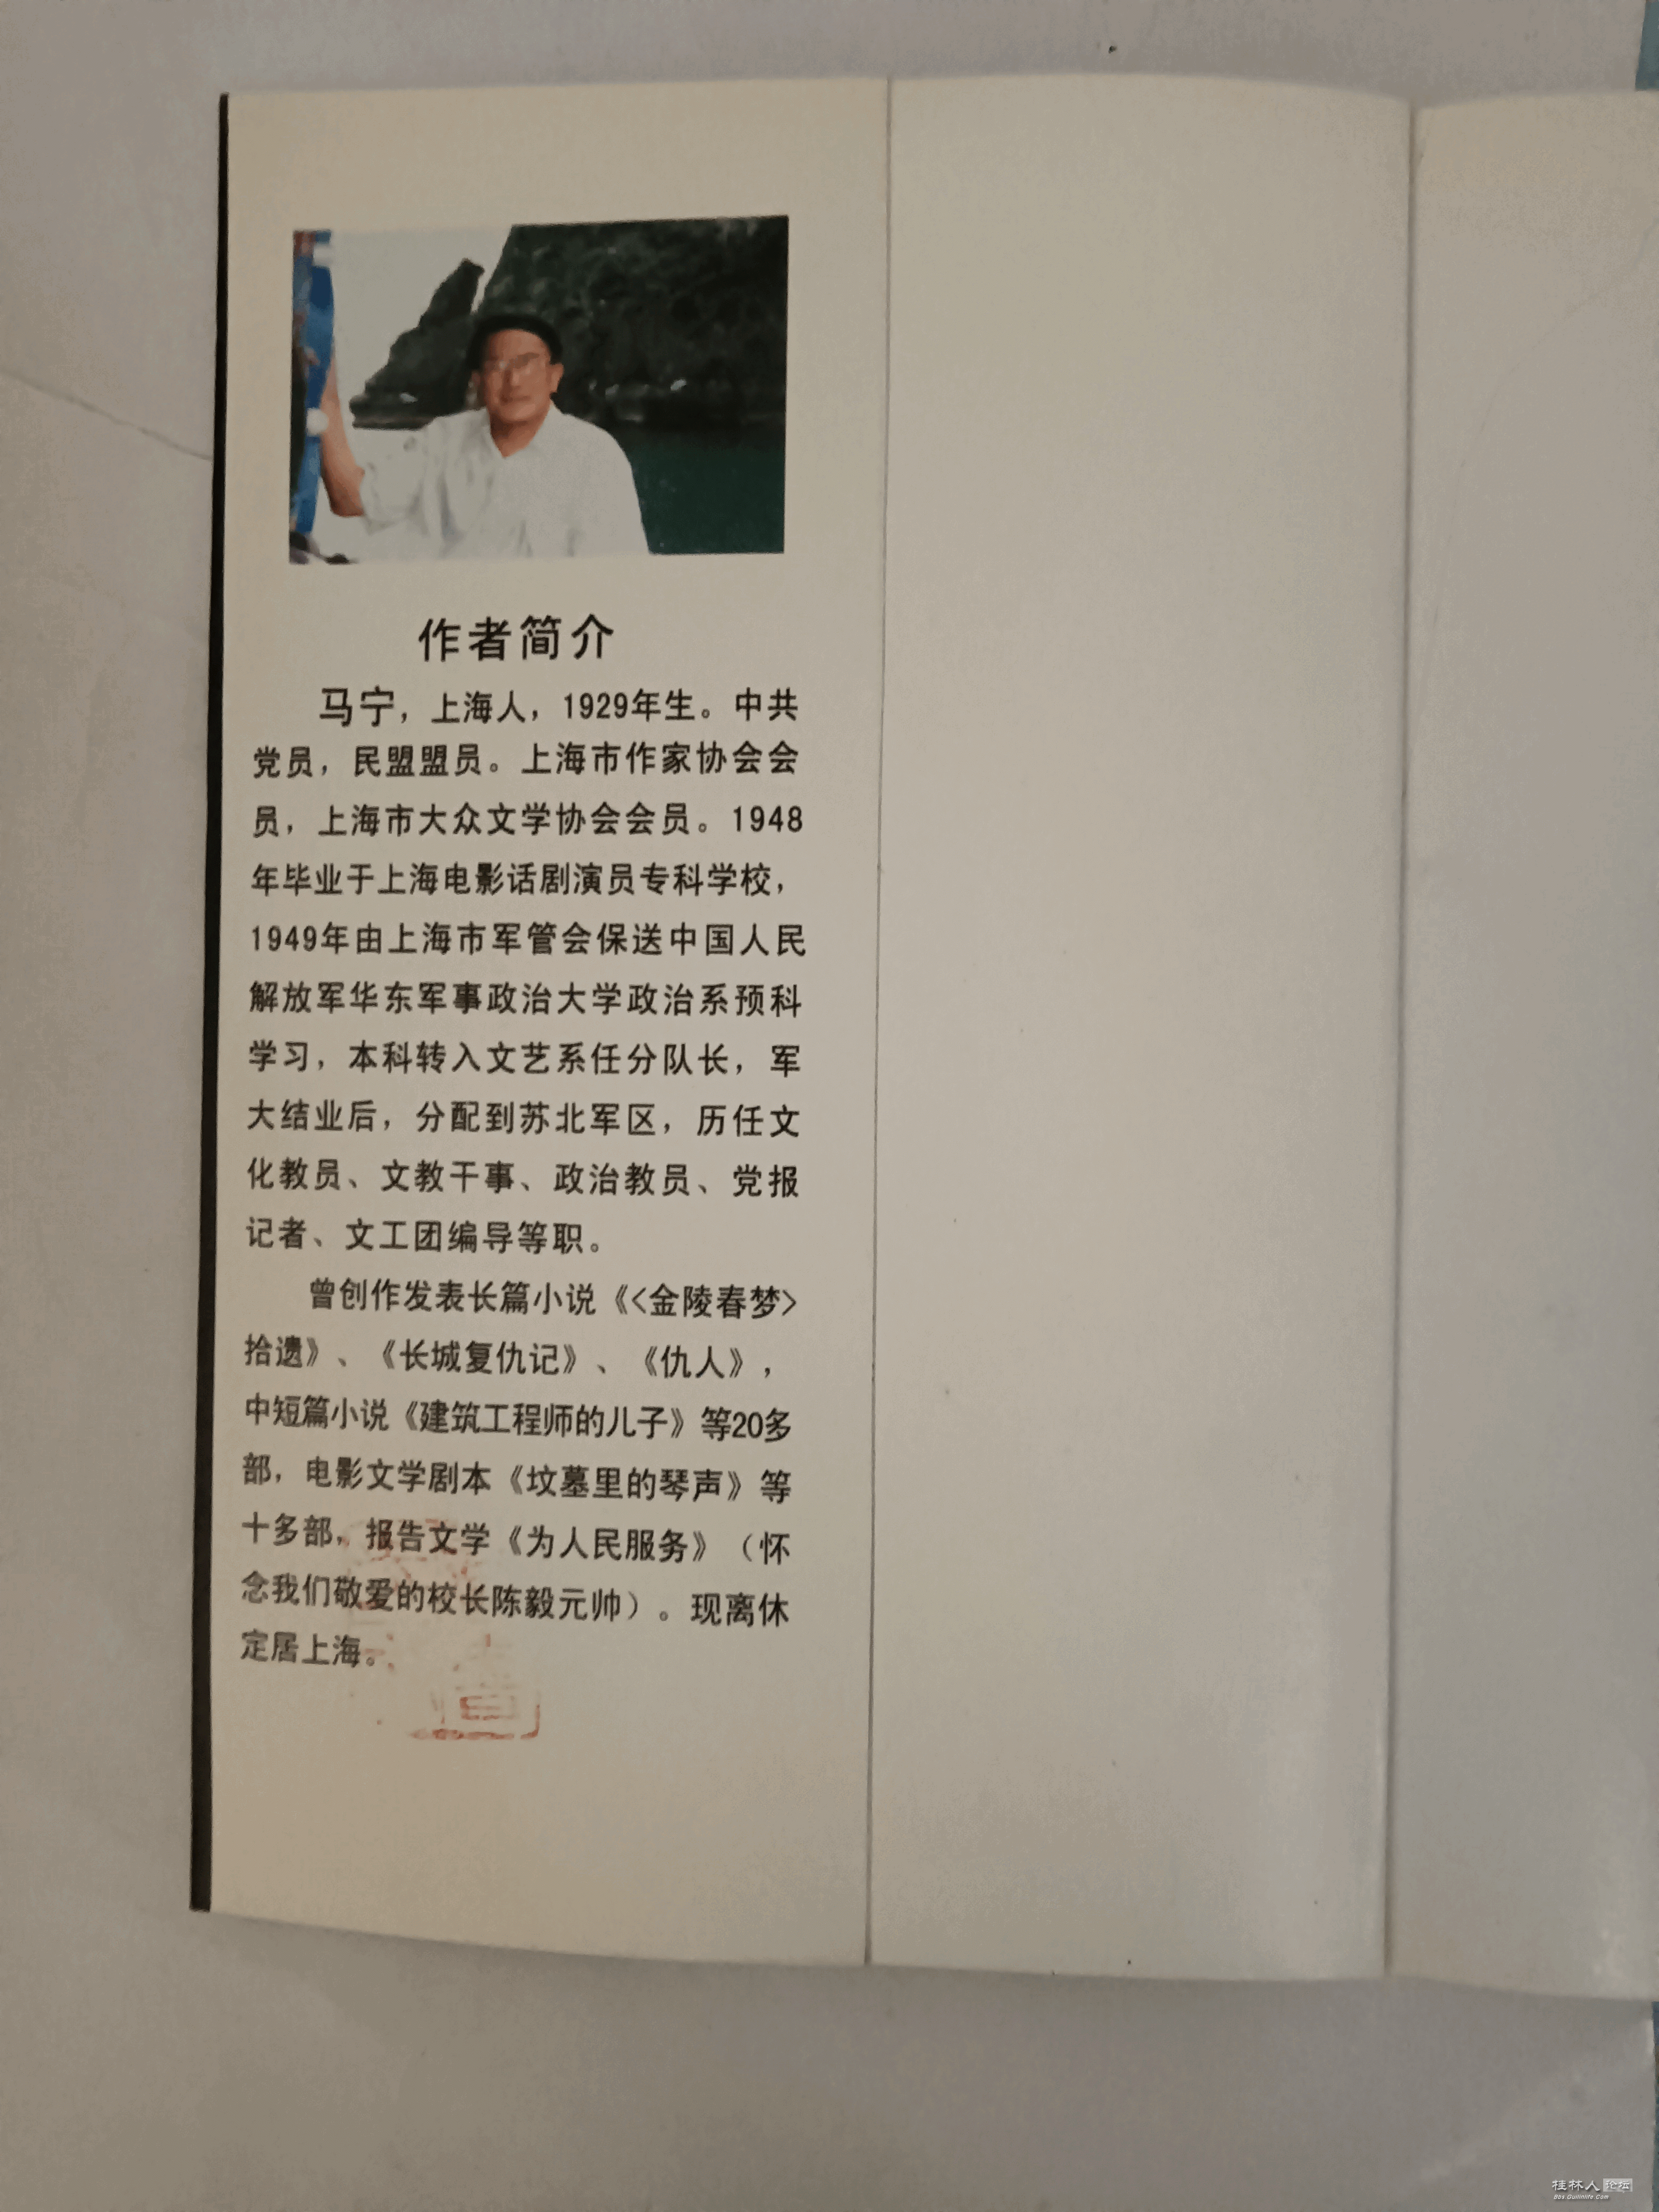 作者简介
马宁，上海人，1929年生。中共
党员，民盟盟员。上海市作家协会会
员，上海市大众文学协会会员。1948
年毕业于上海电影话剧演员专科学校，
1949年由上海市军管会保送中国人民
解放军华东军事政治大学政治系预科
学习，本科转入文艺系任分队长，军
大结业后，分配到苏北军区，历任文
化教员、文教干事、政治教员、党报
记者、文工团编导等职。
曾创作发表长篇小说《<金陵春梦>
拾遗》、《长城复仇记》、《仇人》，
中短篇小说《建筑工程师的儿子》等20多
部，电影文学剧本《坟墓里的琴声》等
十多部，报告文学《为人民服务》（怀
念我们敬爱的校长陈毅元帅）。现离休
定居上海。
桂林人论坛
Bbs.Guilinlife.Com